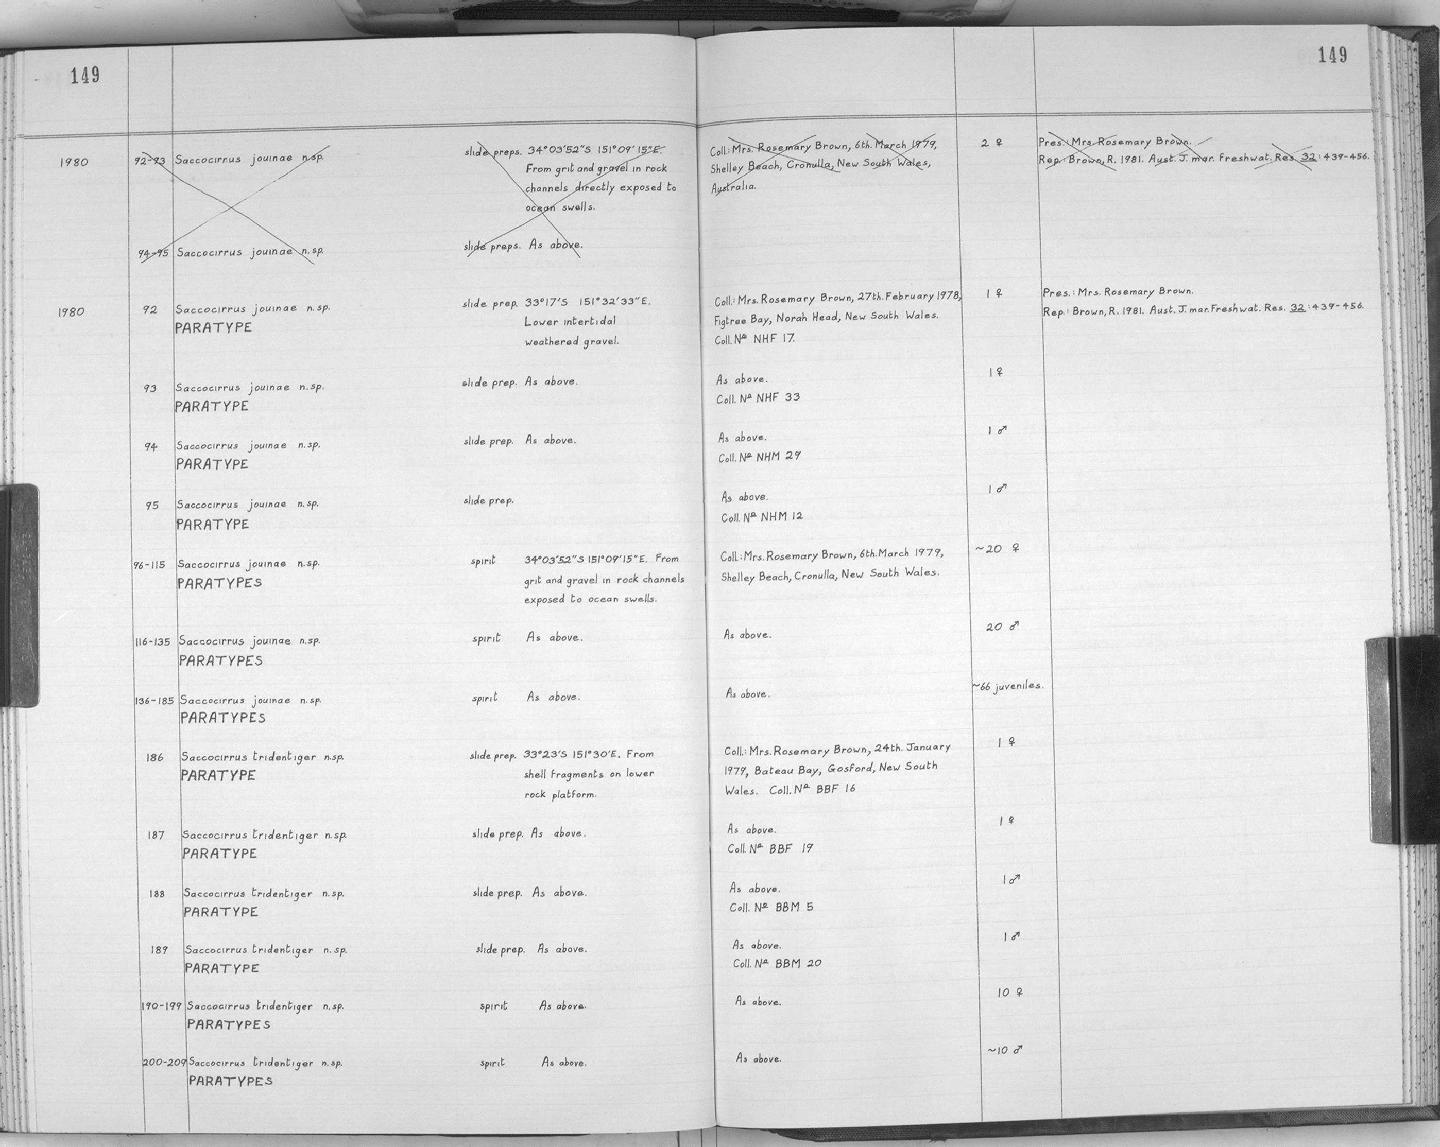 149
149
1980 92-93 Saccocirrus jouinae n.sp. slide preps. 34°03'52"S 151°09'15"E. Coll.: Mrs. Rosemary Brown, 6th. March 1979, 2 ♀ Pres.: Mrs. Rosemary Brown.
From grit and gravel in rock Shelley Beach, Cronulla, New South Wales, Rep. Brown, R. 1981. Aust. J. mar. Freshwat. Res. 32: 439-456.
channels directly exposed to Australia.
ocean swells.
94-95 Saccocirrus jouinae n.sp. slide preps. As above.
1980 92 Saccocirrus jouinae n.sp. slide prep. 33°17'S 151°32'33"E. Coll.: Mrs. Rosemary Brown, 27th. February 1978, 1 ♀ Pres.: Mrs. Rosemary Brown.
PARATYPE Lower intertidal Figtree Bay, Norah Head, New South Wales. Rep.: Brown, R. 1981. Aust. J. mar. Freshwat. Res. 32: 439-456.
weathered gravel. Coll. Nº NHF 17.
93 Saccocirrus jouinae n.sp. slide prep. As above. As above. 1 ♀
PARATYPE Coll. Nº NHF 33
94 Saccocirrus jouinae n.sp. slide prep. As above. As above. 1 ♂
PARATYPE Coll. Nº NHM 29
95 Saccocirrus jouinae n.sp. slide prep. As above. 1 ♂
PARATYPE Coll. Nº NHM 12
96-115 Saccocirrus jouinae n.sp. spirit 34°03'52"S 151°09'15"E. From Coll.: Mrs. Rosemary Brown, 6th. March 1979, ~20 ♀
PARATYPES grit and gravel in rock channels Shelley Beach, Cronulla, New South Wales.
exposed to ocean swells.
116-135 Saccocirrus jouinae n.sp. spirit As above. As above. 20 ♂
PARATYPES
136-185 Saccocirrus jouinae n.sp. spirit As above. As above. ~66 juveniles.
PARATYPES
186 Saccocirrus tridentiger n.sp. slide prep. 33°23'S 151°30'E. From Coll.: Mrs. Rosemary Brown, 24th. January 1 ♀
PARATYPE shell fragments on lower 1979, Bateau Bay, Gosford, New South
rock platform. Wales. Coll. Nº BBF 16
187 Saccocirrus tridentiger n.sp. slide prep. As above. As above. 1 ♀
PARATYPE Coll. Nº BBF 19
188 Saccocirrus tridentiger n.sp. slide prep. As above. As above. 1 ♂
PARATYPE Coll. Nº BBM 5
189 Saccocirrus tridentiger n.sp. slide prep. As above. As above. 1 ♂
PARATYPE Coll. Nº BBM 20
190-199 Saccocirrus tridentiger n.sp. spirit As above. As above. 10 ♀
PARATYPES
200-209 Saccocirrus tridentiger n.sp. spirit As above. As above. ~10 ♂
PARATYPES